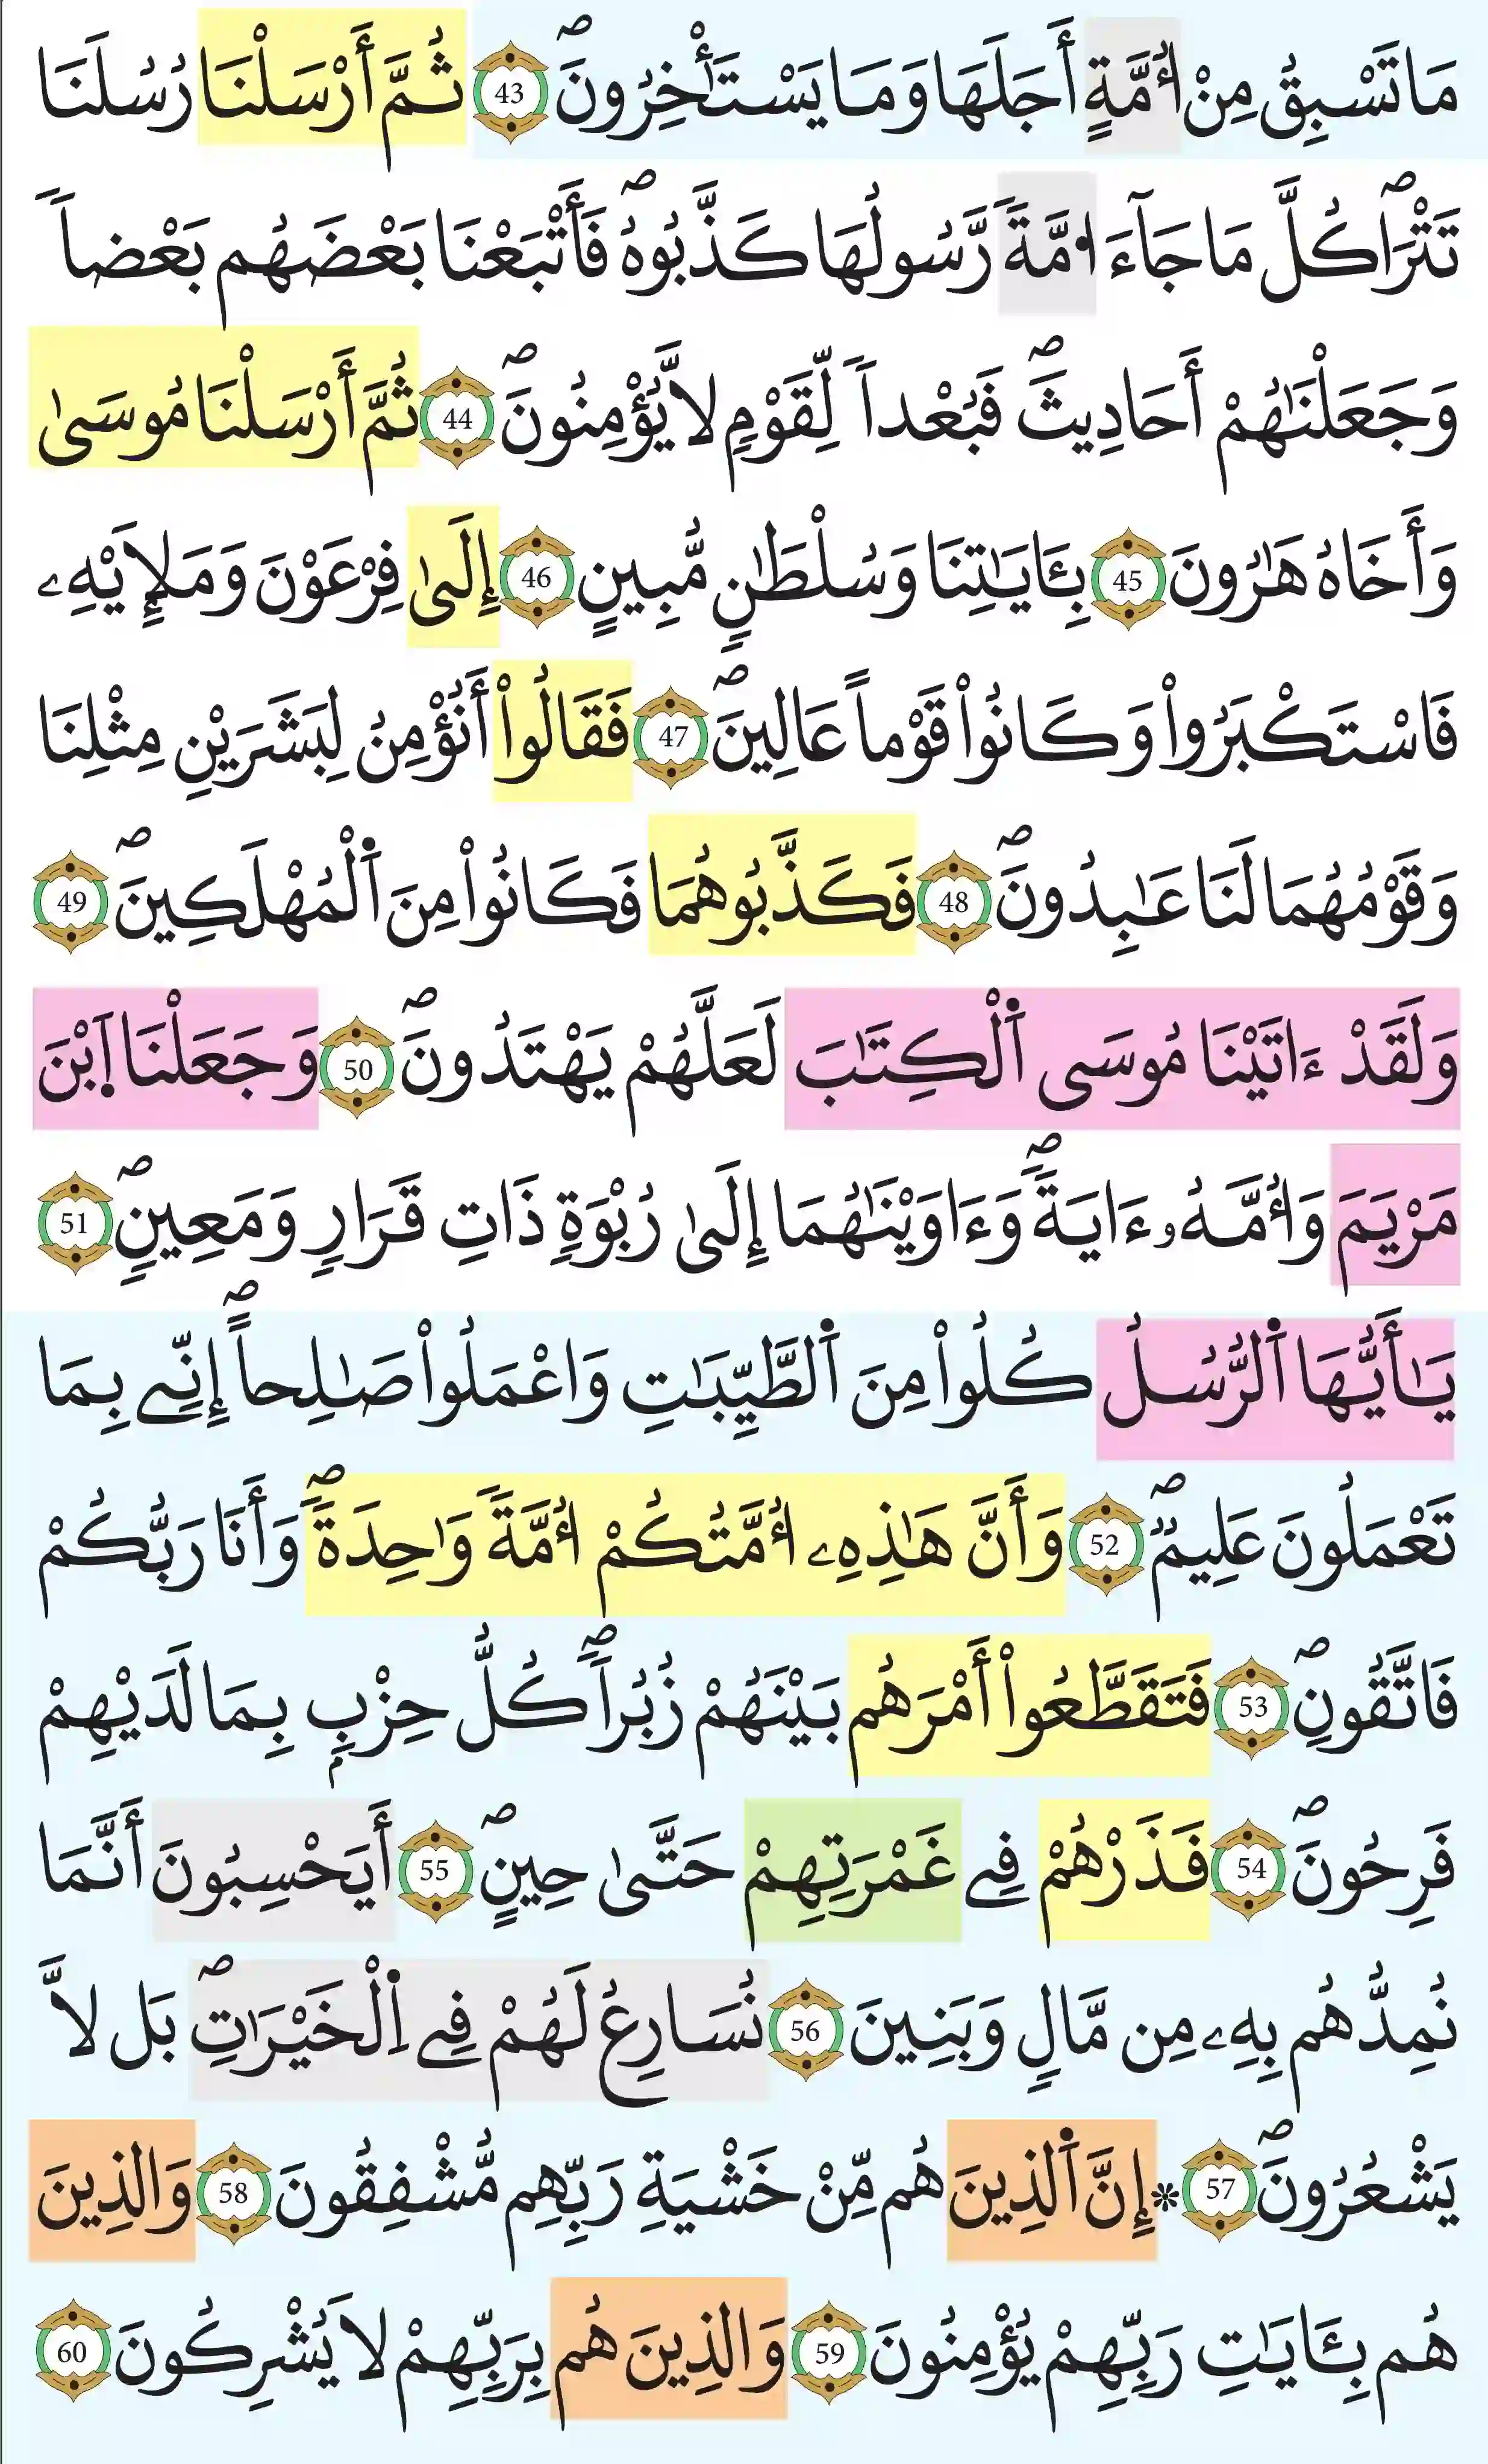 مَا تَسْبِقُ مِنْ أُمَّةٍ أَجَلَهَا وَمَا يَسْتَـْٔخِرُونَۖ 43 ثُمَّ أَرْسَلْنَا رُسُلَنَا
تَتْرَاۖ كُلَّ مَا جَآءَ امَّةٗ رَّسُولُهَا كَذَّبُوهُۖ فَأَتْبَعْنَا بَعْضَهُم بَعْضاٗ
وَجَعَلْنَٰهُمْ أَحَادِيثَۖ فَبُعْداٗ لِّقَوْمٖ لَّا يُؤْمِنُونَۖ 44 ثُمَّ أَرْسَلْنَا مُوسَىٰ
وَأَخَاهُ هَٰرُونَ 45 بِـَٔايَٰتِنَا وَسُلْطَٰنٖ مُّبِينٍ 46 إِلَىٰ فِرْعَوْنَ وَمَلَإِيْهِۦ
فَاسْتَكْبَرُواْ وَكَانُواْ قَوْماً عَالِينَۖ 47 فَقَالُواْ أَنُؤْمِنُ لِبَشَرَيْنِ مِثْلِنَا
وَقَوْمُهُمَا لَنَا عَٰبِدُونَۖ 48 فَكَذَّبُوهُمَا فَكَانُواْ مِنَ اَ۬لْمُهْلَكِينَۖ 49
وَلَقَدْ ءَاتَيْنَا مُوسَى اَ۬لْكِتَٰبَ لَعَلَّهُمْ يَهْتَدُونَۖ 50 وَجَعَلْنَا اَ۪بْنَ
مَرْيَمَ وَأُمَّهُۥ ءَايَةٗۖ وَءَاوَيْنَٰهُمَا إِلَىٰ رُبْوَةٖ ذَاتِ قَرَارٖ وَمَعِينٖۖ 51
يَٰأَيُّهَا اَ۬لرُّسُلُ كُلُواْ مِنَ اَ۬لطَّيِّبَٰتِ وَاعْمَلُواْ صَٰلِحاًۖ إِنِّے بِمَا
تَعْمَلُونَ عَلِيمٞۖ 52 وَأَنَّ هَٰذِهِۦ أُمَّتُكُمْ أُمَّةٗ وَٰحِدَةٗۖ وَأَنَا رَبُّكُمْ
فَاتَّقُونِۖ 53 فَتَقَطَّعُواْ أَمْرَهُم بَيْنَهُمْ زُبُراٗۖ كُلُّ حِزْبِۢ بِمَا لَدَيْهِمْ
فَرِحُونَۖ 54 فَذَرْهُمْ فِے غَمْرَتِهِمْ حَتَّىٰ حِينٍۖ 55 أَيَحْسِبُونَ أَنَّمَا
نُمِدُّهُم بِهِۦ مِن مَّالٖ وَبَنِينَ 56 نُسَارِعُ لَهُمْ فِے اِ۬لْخَيْرَٰتِۖ بَل لَّا
يَشْعُرُونَۖ 57 ۞ إِنَّ اَ۬لذِينَ هُم مِّنْ خَشْيَةِ رَبِّهِم مُّشْفِقُونَ 58 وَالذِينَ
هُم بِـَٔايَٰتِ رَبِّهِمْ يُؤْمِنُونَ 59 وَالذِينَ هُم بِرَبِّهِمْ لَا يُشْرِكُونَ 60